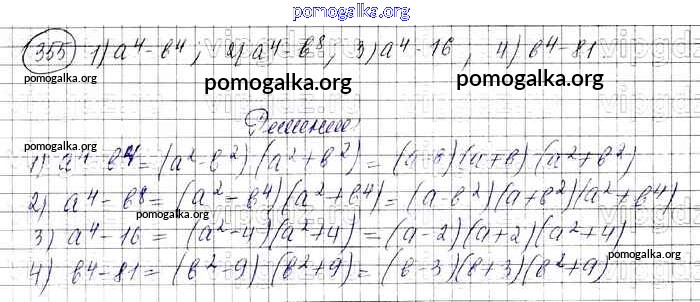 pomogalka.org
355 1) a⁴ - b⁴; 2) a⁴ - b⁸; 3) a⁴ - 16; 4) b⁴ - 81
pomogalka.org
pomogalka.org pomogalka.org
Решение:
pomogalka.org
1) a⁴ - b⁴ = (a² - b²)(a² + b²) = (a - b)(a + b)(a² + b²)
2) a⁴ - b⁸ = (a² - b⁴)(a² + b⁴) = (a - b²)(a + b²)(a² + b⁴)
pomogalka.org
3) a⁴ - 16 = (a² - 4)(a² + 4) = (a - 2)(a + 2)(a² + 4)
pomogalka.org
4) b⁴ - 81 = (b² - 9)(b² + 9) = (b - 3)(b + 3)(b² + 9)
pomogalka.org